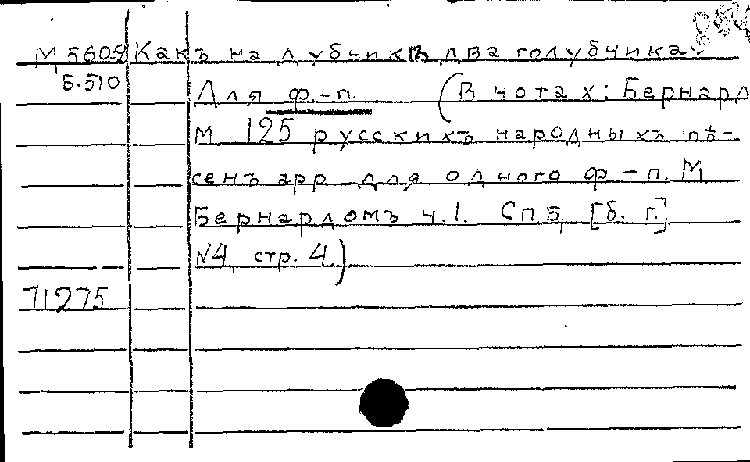 М 5608 Какъ на дубчикѣ два голубчика.
Б.510 Для ф.-п. (В нотах: Бернард
М 125 русскихъ народныхъ пѣ-
сенъ арр. для одного ф-п. М.
Бернардомъ ч.1. Спб, [б. г.]
№4, стр. 4.)
71275